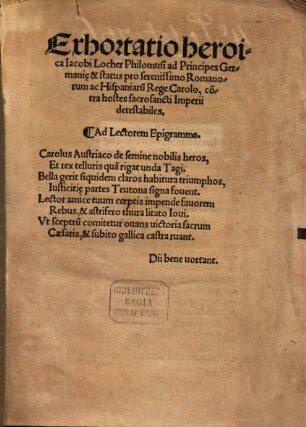 Exhortatio heroi-
ca Iacobi Locher Philomusi ad Principes Ger-
manię & status pro serenissimo Romano-
rum ac Hispaniarū Rege Carolo, cō-
tra hostes sacrosancti Imperii
detestabiles.
¶Ad Lectorem Epigramme.
Carolus Austriaco de semine nobilis heros,
Et rex telluris quā rigat unda Tagi,
Bella gerit siquidem claros habitura triumphos,
Iusticię partes Teutona signa fouent.
Lector amice tuum cœptis impende fauorem
Rebus, & astrifero thura litato Ioui,
Vt sceptrū comitetur ouans uictoria sacrum
Cæsaris, & subito gallica castra ruant.
Dii bene uortant.
BIBLIOTHECA
REGIA
MONACENSIS